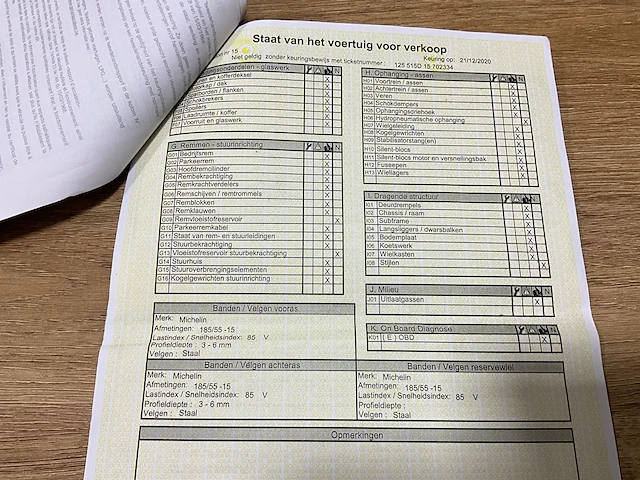 Staat van het voertuig voor verkoop
nr 15
Niet geldig zonder keuringsbewijs met ticketnummer : 125 515D 15 702334
Keuring op: 21/12/2020
onderdelen - glaswerk N
en kofferdeksel X
kap / dak X
borden / flanken X
Schokbrekers X
Spoilers X
Laadruimte / koffer X
F07 Voorruit en glaswerk X
G. Remmen - stuurinrichting N
G01 Bedrijfsrem X
G02 Parkeerrem X
G03 Hoofdremcilinder X
G04 Rembekrachtiging X
G05 Remkrachtverdelers X
G06 Remschijven / remtrommels X
G07 Remblokken X
G08 Remklauwen X
G09 Remvloeistofreservoir X
G10 Parkeerremkabel X
G11 Staat van rem- en stuurleidingen X
G12 Stuurbekrachtiging X
G13 Vloeistofreservoir stuurbekrachtiging X
G14 Stuurhuis X
G15 Stuuroverbrengingselementen X
G16 Kogelgewrichten stuurinrichting X
H. Ophanging - assen N
H01 Voortrein / assen X
H02 Achtertrein / assen X
H03 Veren X
H04 Schokdempers X
H05 Ophangingsdriehoek X
H06 Hydropneumatische ophanging X
H07 Wielgeleiding X
H08 Kogelgewrichten X
H09 Stabilisatorstang(en) X
H10 Silent-blocs X
H11 Silent-blocs motor en versnellingsbak X
H12 Fuseepen X
H13 Wiellagers X
I. Dragende structuur N
I01 Deurdrempels X
I02 Chassis / raam X
I03 Subframe X
I04 Langsliggers / dwarsbalken X
I05 Bodemplaat X
I06 Koetswerk X
I07 Wielkasten X
I08 Stijlen X
J. Milieu N
J01 Uitlaatgassen X
K. On Board Diagnose N
K01 ( E ) OBD X
Banden / Velgen vooras
Merk: Michelin
Afmetingen: 185/55 -15
Lastindex / Snelheidsindex: 85 V
Profieldiepte : 3 - 6 mm
Velgen : Staal
Banden / Velgen achteras
Merk: Michelin
Afmetingen: 185/55 -15
Lastindex / Snelheidsindex: 85 V
Profieldiepte : 3 - 6 mm
Velgen : Staal
Banden / Velgen reservewiel
Merk: Michelin
Afmetingen : 185/55 -15
Lastindex / Snelheidsindex : 85 V
Profieldiepte :
Velgen : Staal
Opmerkingen